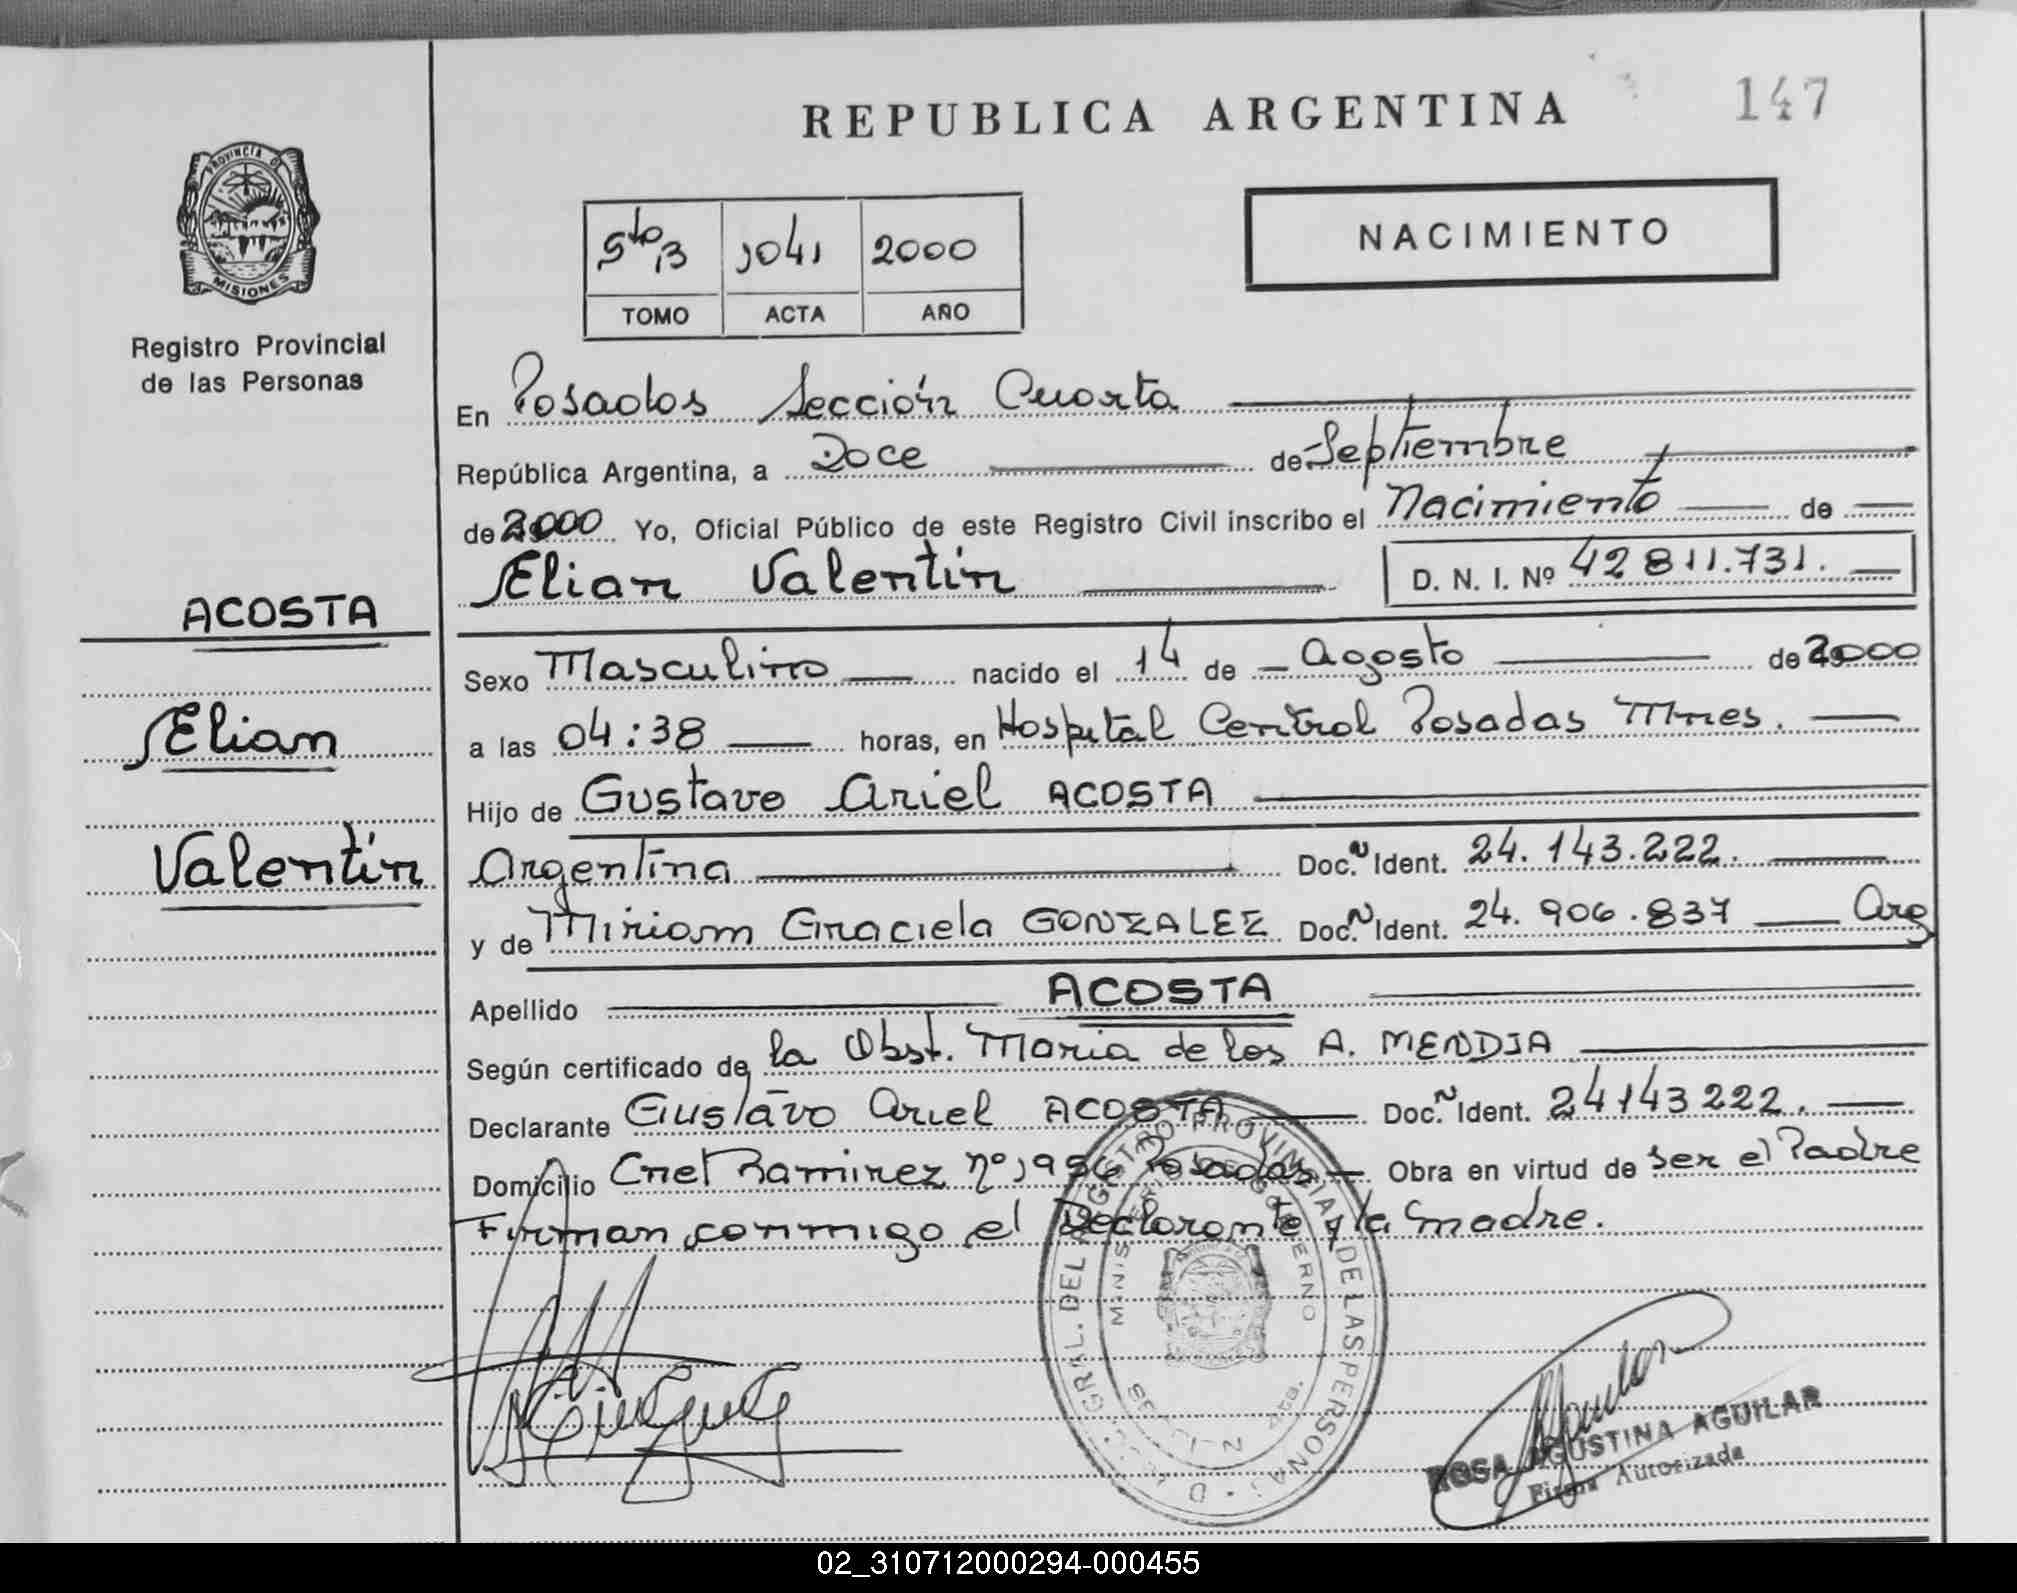 REPUBLICA ARGENTINA
147
PROVINCIA DE
MISIONES
Registro Provincial
de las Personas
5to B 1041 2000
TOMO ACTA AÑO
NACIMIENTO
En Posadas Sección Cuarta
República Argentina, a Doce de Septiembre
de 2000 Yo, Oficial Público de este Registro Civil inscribo el Nacimiento de
Elian Valentín D. N. I. Nº 42 811.731.
ACOSTA
Elian
Valentín
Sexo Masculino nacido el 14 de Agosto de 2000
a las 04:38 horas, en Hospital Central Posadas Mnes.
Hijo de Gustavo Ariel ACOSTA
Argentina Doc. Ident. 24.143.222.
y de Miriam Graciela GONZALEZ Doc. Ident. 24.906.837 Arg
Apellido ACOSTA
Según certificado de la Obst. Maria de los A. MENDIA
Declarante Gustavo Ariel ACOSTA Doc. Ident. 24143222.
Domicilio Cnel Ramirez nº 1956 Posadas Obra en virtud de ser el Padre
Firman conmigo el Declarante y la madre.
GRAL. DEL REGISTRO PROVINCIAL DE LAS PERSONAS
MINISTERIO DE GOBIERNO
ROSA AGUSTINA AGUILAR
Firma Autorizada
02_310712000294-000455